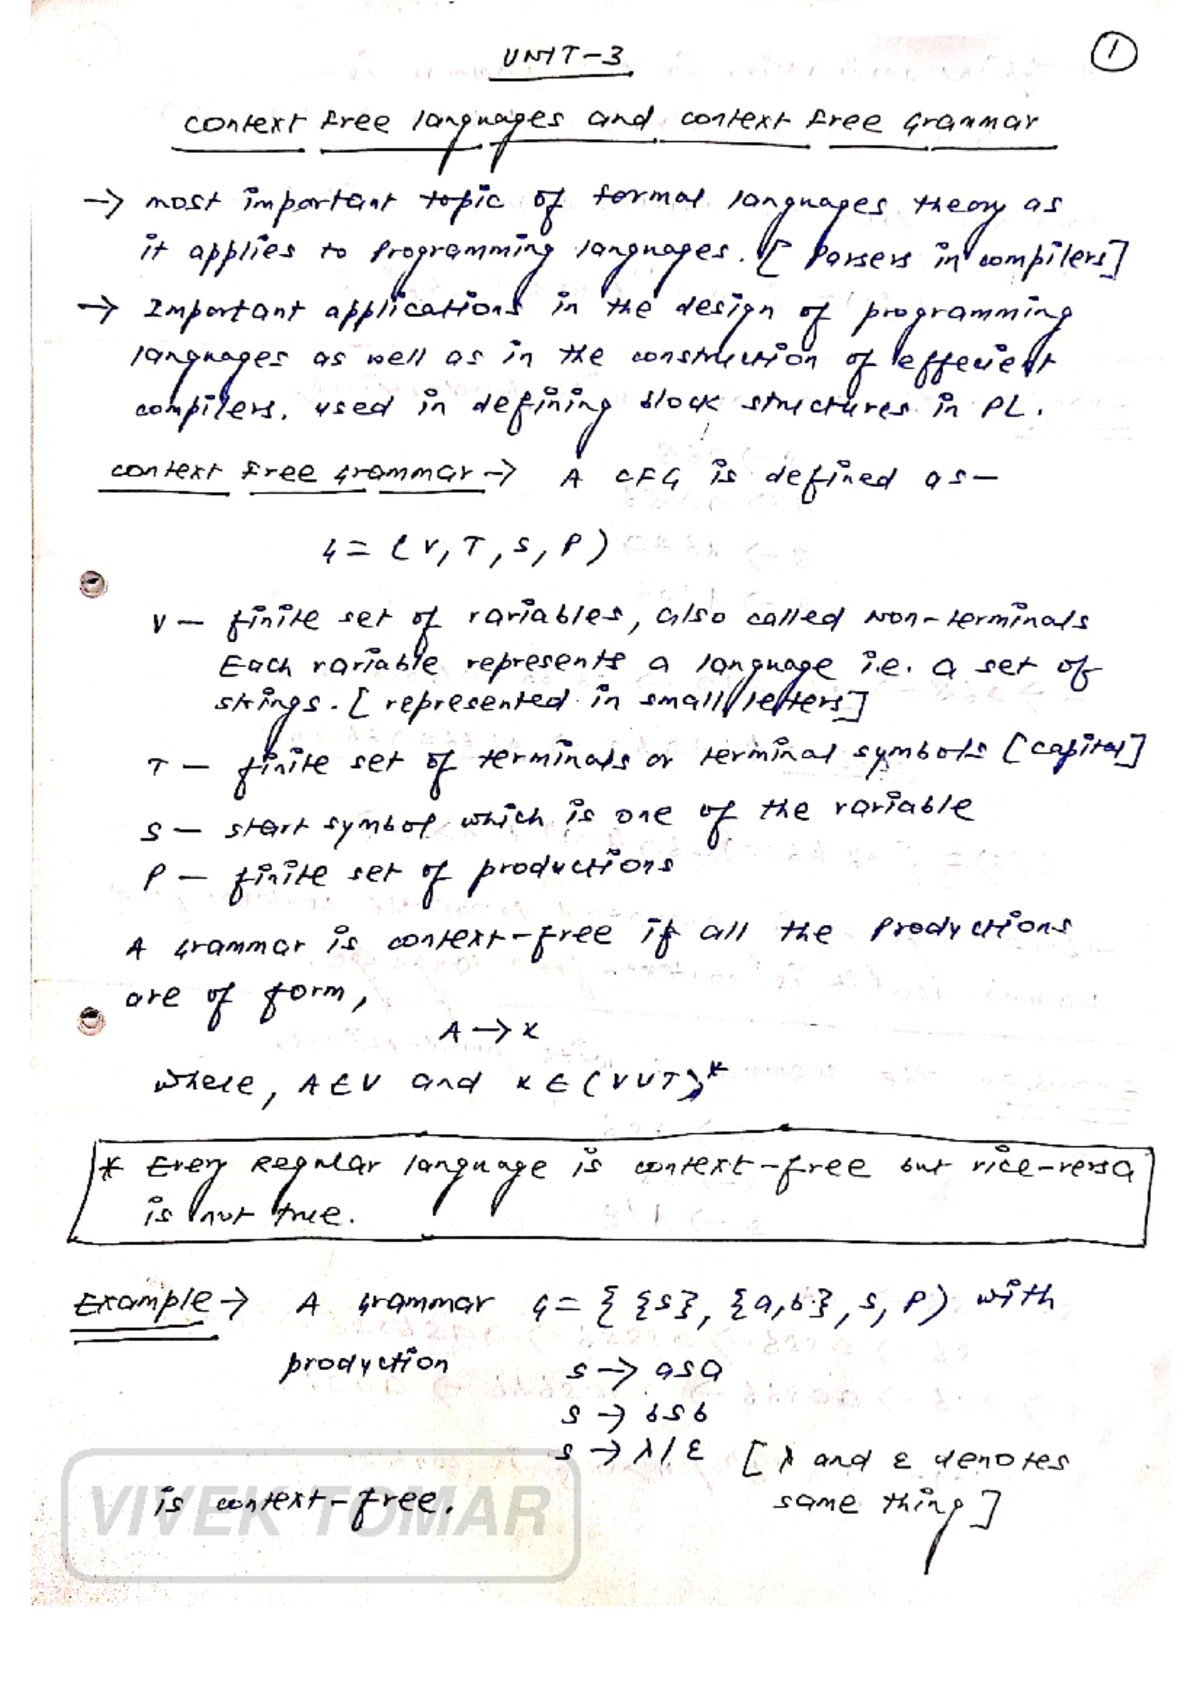 UNIT-3
1
context free languages and context free Grammar
→ most important topic of formal languages theory as
it applies to programming languages. [ Parsers in compilers]
→ Important applications in the design of programming
languages as well as in the construction of effecient
compilers. used in defining block structures in PL.
context Free Grammar → A CFG is defined as—
G = ( V, T, S, P )
V — finite set of variables, also called Non-terminals
Each variable represents a language i.e. a set of
strings. [ represented in small letters]
T — finite set of terminals or terminal symbols [capital]
S — start symbol which is one of the variable
P — finite set of productions
A Grammar is context-free if all the Productions
are of form,
A → x
where, A ∈ V and x ∈ (V ∪ T)*
* Every Regular language is context-free but vice-versa
is not true.
Example → A Grammar G = { {S}, {a,b}, S, P) with
production S → aSa
S → bSb
S → λ/ε [ λ and ε denotes
is context-free. same thing ]
VIVEK TOMAR